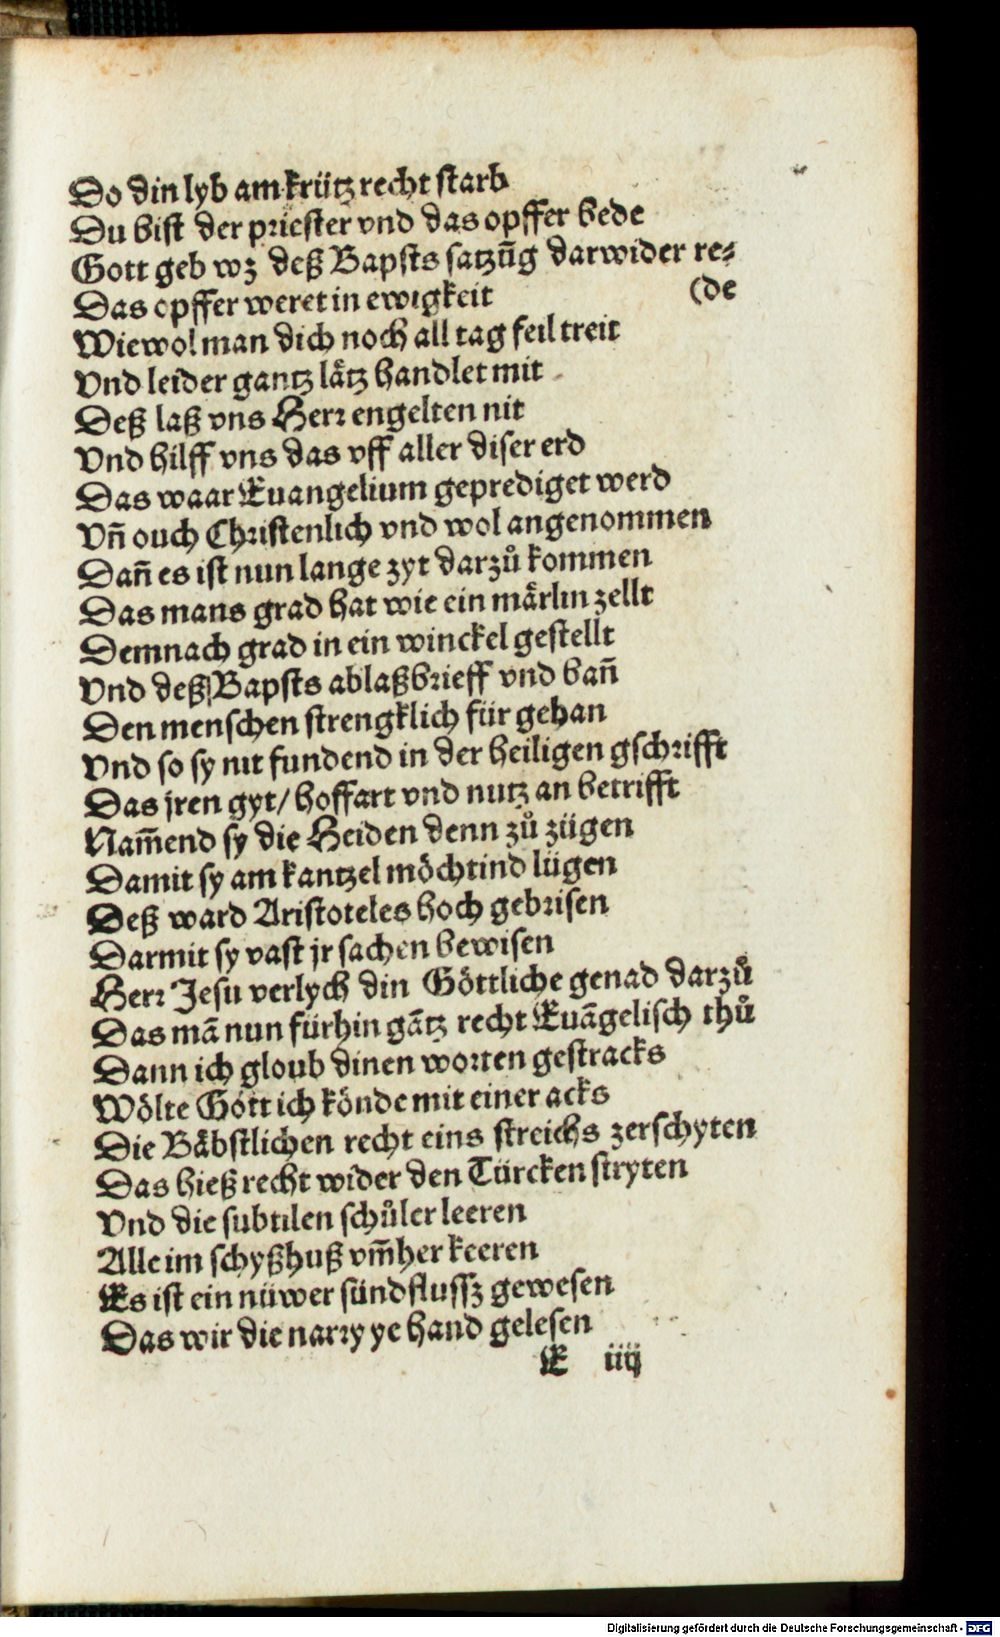 Do din lyb am krütz recht starb
Du bist der priester vnd das opffer bede
Gott geb wz deß Bapsts satzũg darwider re⸗
Das opffer weret in ewigkeit (de
Wiewol man dich noch all tag feil treit
Vnd leider gantz lätz handlet mit
Deß laß vns Herr engelten nit
Vnd hilff vns das vff aller diser erd
Das waar Euangelium geprediget werd
Vñ ouch Christenlich vnd wol angenommen
Dañ es ist nun lange zyt darzů kommen
Das mans grad hat wie ein märlin zellt
Demnach grad in ein winckel gestellt
Vnd deß Bapsts ablaßbrieff vnd bañ
Den menschen strengklich für gehan
Vnd so sy nit fundend in der heiligen gschrifft
Das jren gyt/ hoffart vnd nutz an betrifft
Nam̃end sy die Heiden denn zů zügen
Damit sy am kantzel möchtind lügen
Deß ward Aristoteles hoch gebrisen
Darmit sy vast jr sachen bewisen
Herr Jesu verlych din Göttliche genad darzů
Das mã nun fürhin gãtz recht Euãgelisch thů
Dann ich gloub dinen worten gestracks
Wölte Gott ich könde mit einer acks
Die Bäbstlichen recht eins streichs zerschyten
Das hieß recht wider den Türcken stryten
Vnd die subtilen schůler leeren
Alle im schyßhuß vm̃her keeren
Es ist ein nüwer sündflussz gewesen
Das wir die narry ye hand gelesen
E iiij
Digitalisierung gefördert durch die Deutsche Forschungsgemeinschaft - DFG